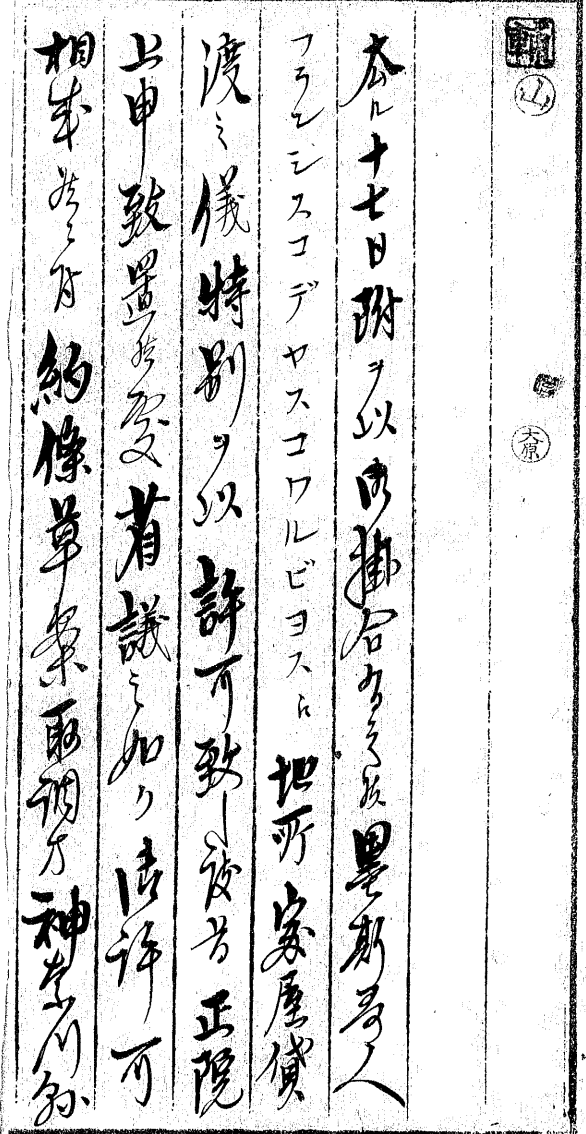 山
大原
去ル十七日附ヲ以御掛合有之候墨斯哥人
フランシスコデヤスコワルビヨスニ地所家屋貸
渡之儀特別ヲ以許可致し度旨正院
上申致置候處着議之如ク御許可
相成候ニ付約條草案取調方神奈川縣